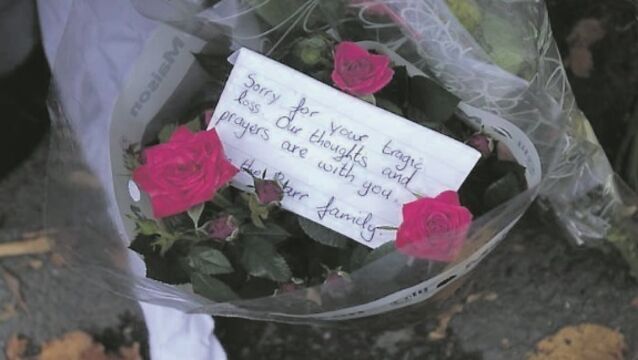 Maison
Sorry for your tragic
loss. Our thoughts and
prayers are with you.
the Starr family.